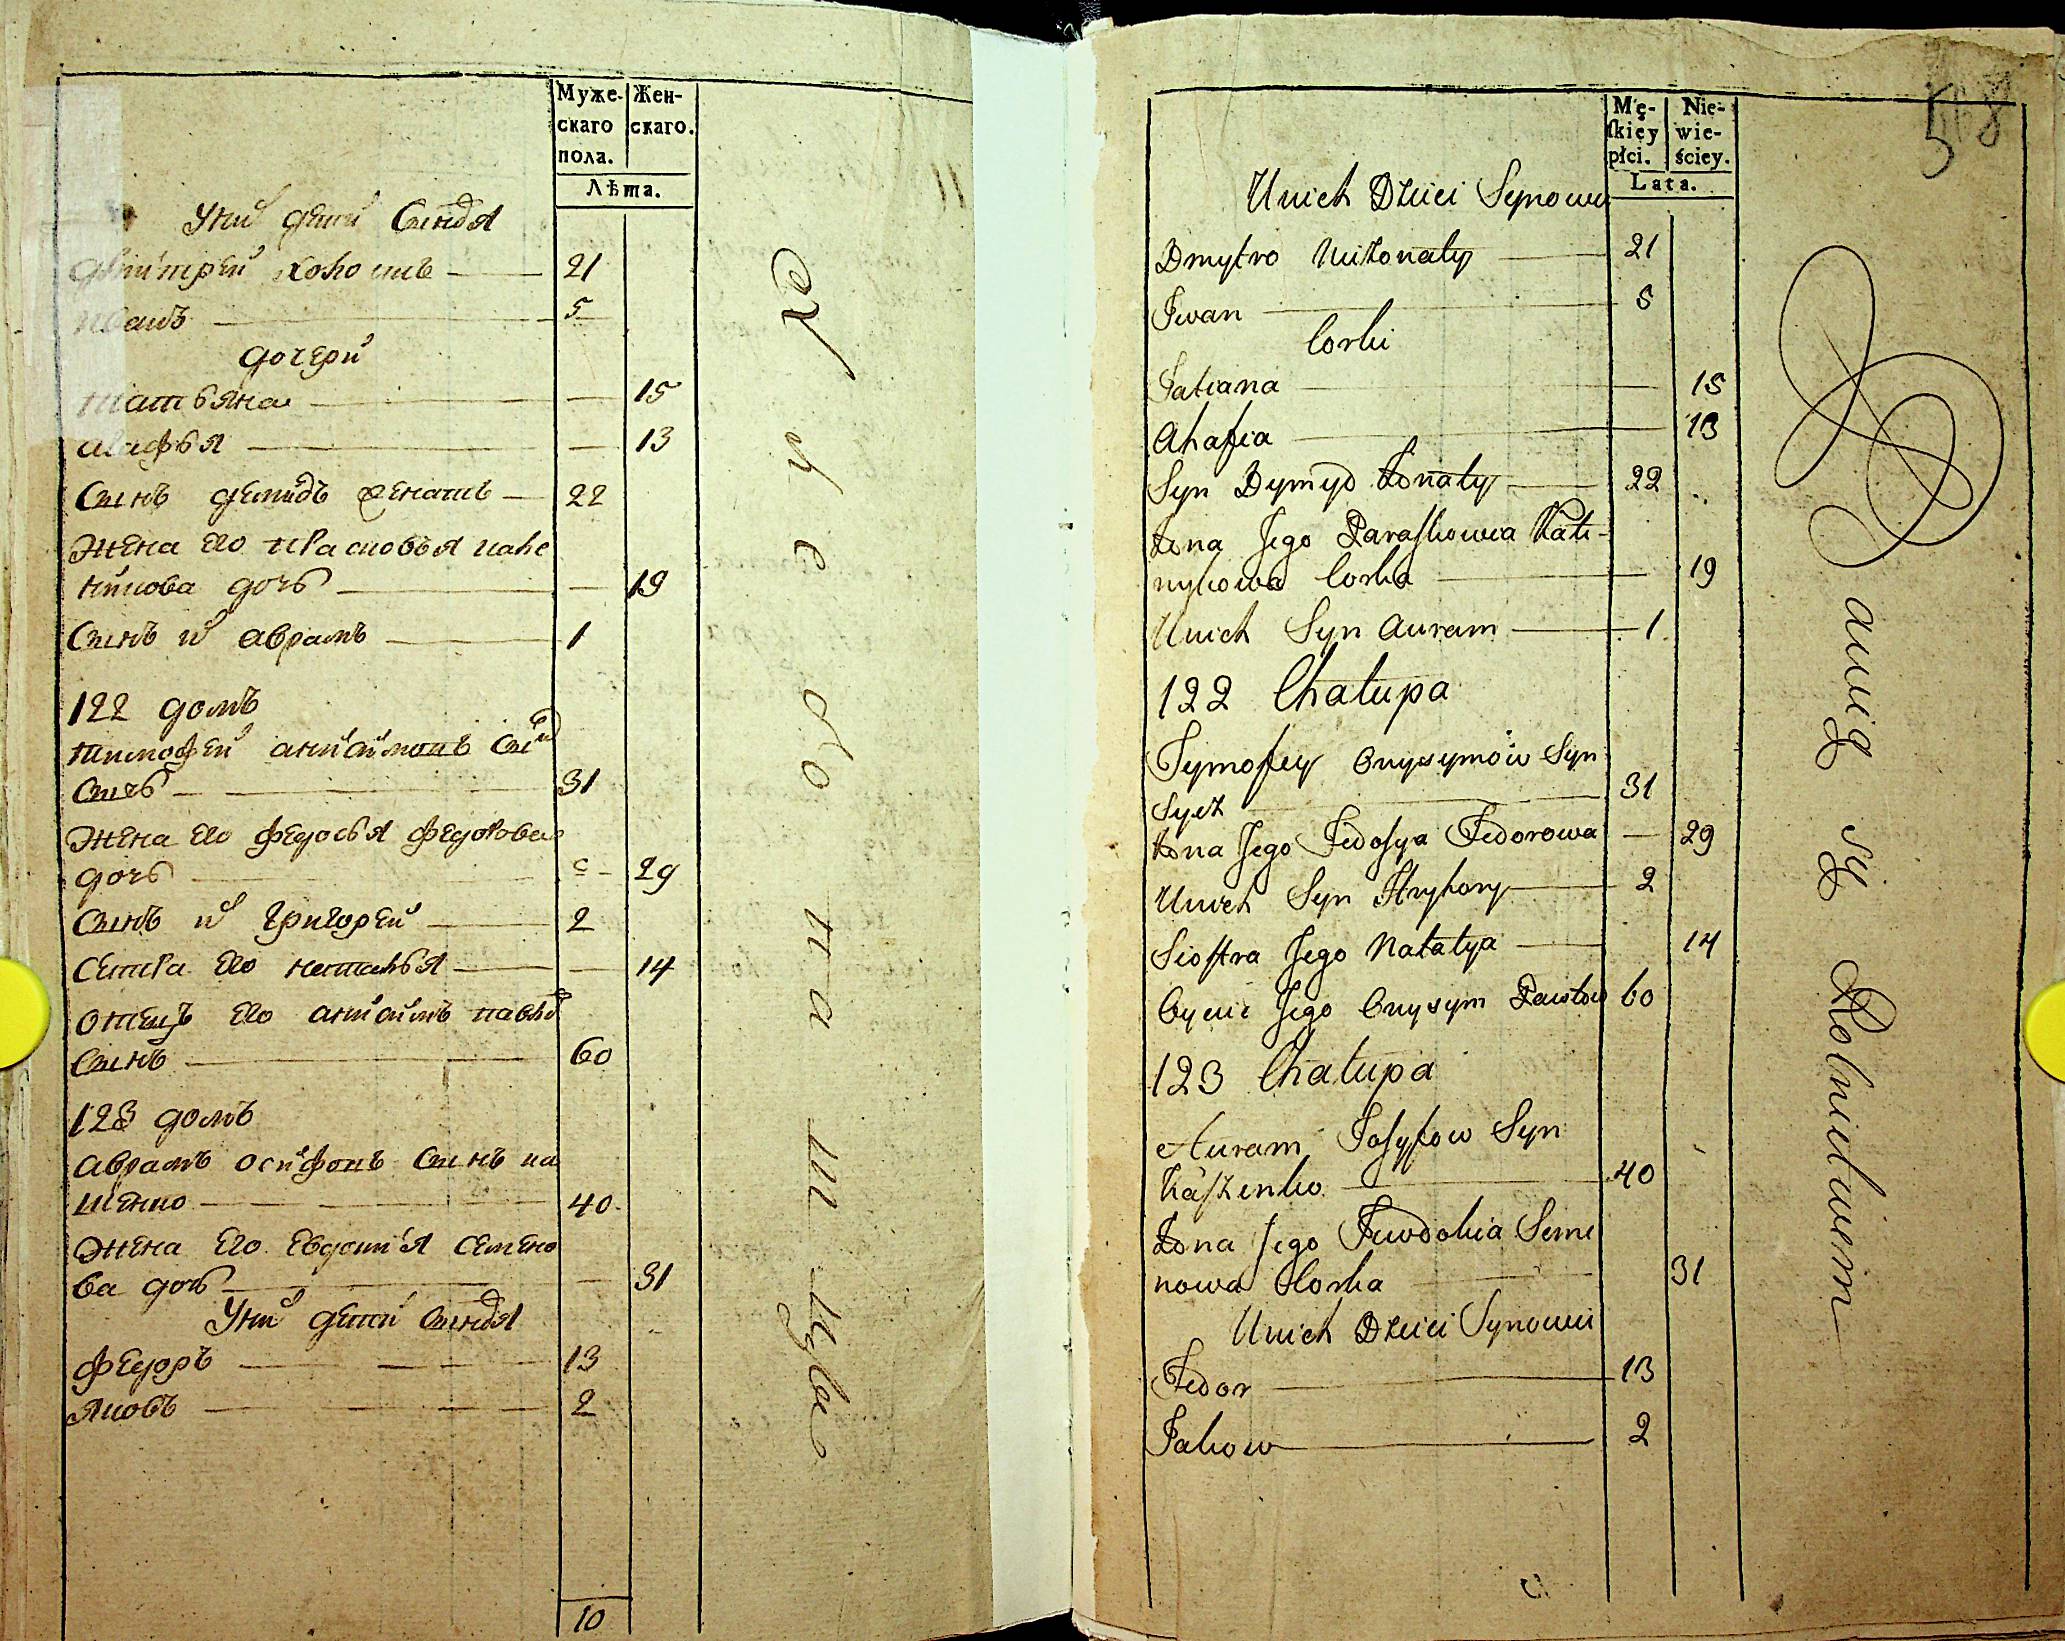 Муже-
скаго
пола.
Жен-
скаго.
Лѣта.
У ни дети Синовя
Дмитрей холость 21
Иванъ 5
дочери
Татьяна 15
Агафья 13
Синъ демидъ женатъ 22
Жена Его прасковья кале
никова дочь 19
Синъ и аврамъ 1
122 домъ
тимофей анисимовъ Синъ
Сичь 31
Жена Его федосья федорова
дочь 29
Синъ и Григорей 2
Сетра Его наталья 14
отецъ Его анисимъ павло
Синъ 60
123 домъ
аврамъ осифовъ Синъ ка
шенко 40
Жена Его Евдокия семено
ва дочь 31
У ни дети Синовя
федоръ 13
яковъ 2
10
на
шкува
58
Mę-
ſkiey
płci.
Nie-
wie-
ściey.
Lata.
Unich Dzieci Synowie
Dmytro Niżonaty 21
Iwan 5
Corki
Tatiana 15
Ahafia 13
Syn Dymyd Żonaty 22
Żona Jego Paraſkowia Kale-
nykowa Corka 19
Unich Syn Auram 1
122 Chałupa
Tymofey Onysymów Syn
Sycz 31
Żona Jego Fedoſya Fedorowa 29
Unich Syn Hryhory 2
Sioſtra Jego Natalya 14
Oyciec Jego Onysym Pawłow 60
123 Chałupa
Auram Joſyfow Syn
Kaſzenko 40
Żona Jego Iewdokia Seme
nowa Corka 31
Unich Dzieci Synowie
Fedor 13
Jakow 2
awią się Rolnictwem